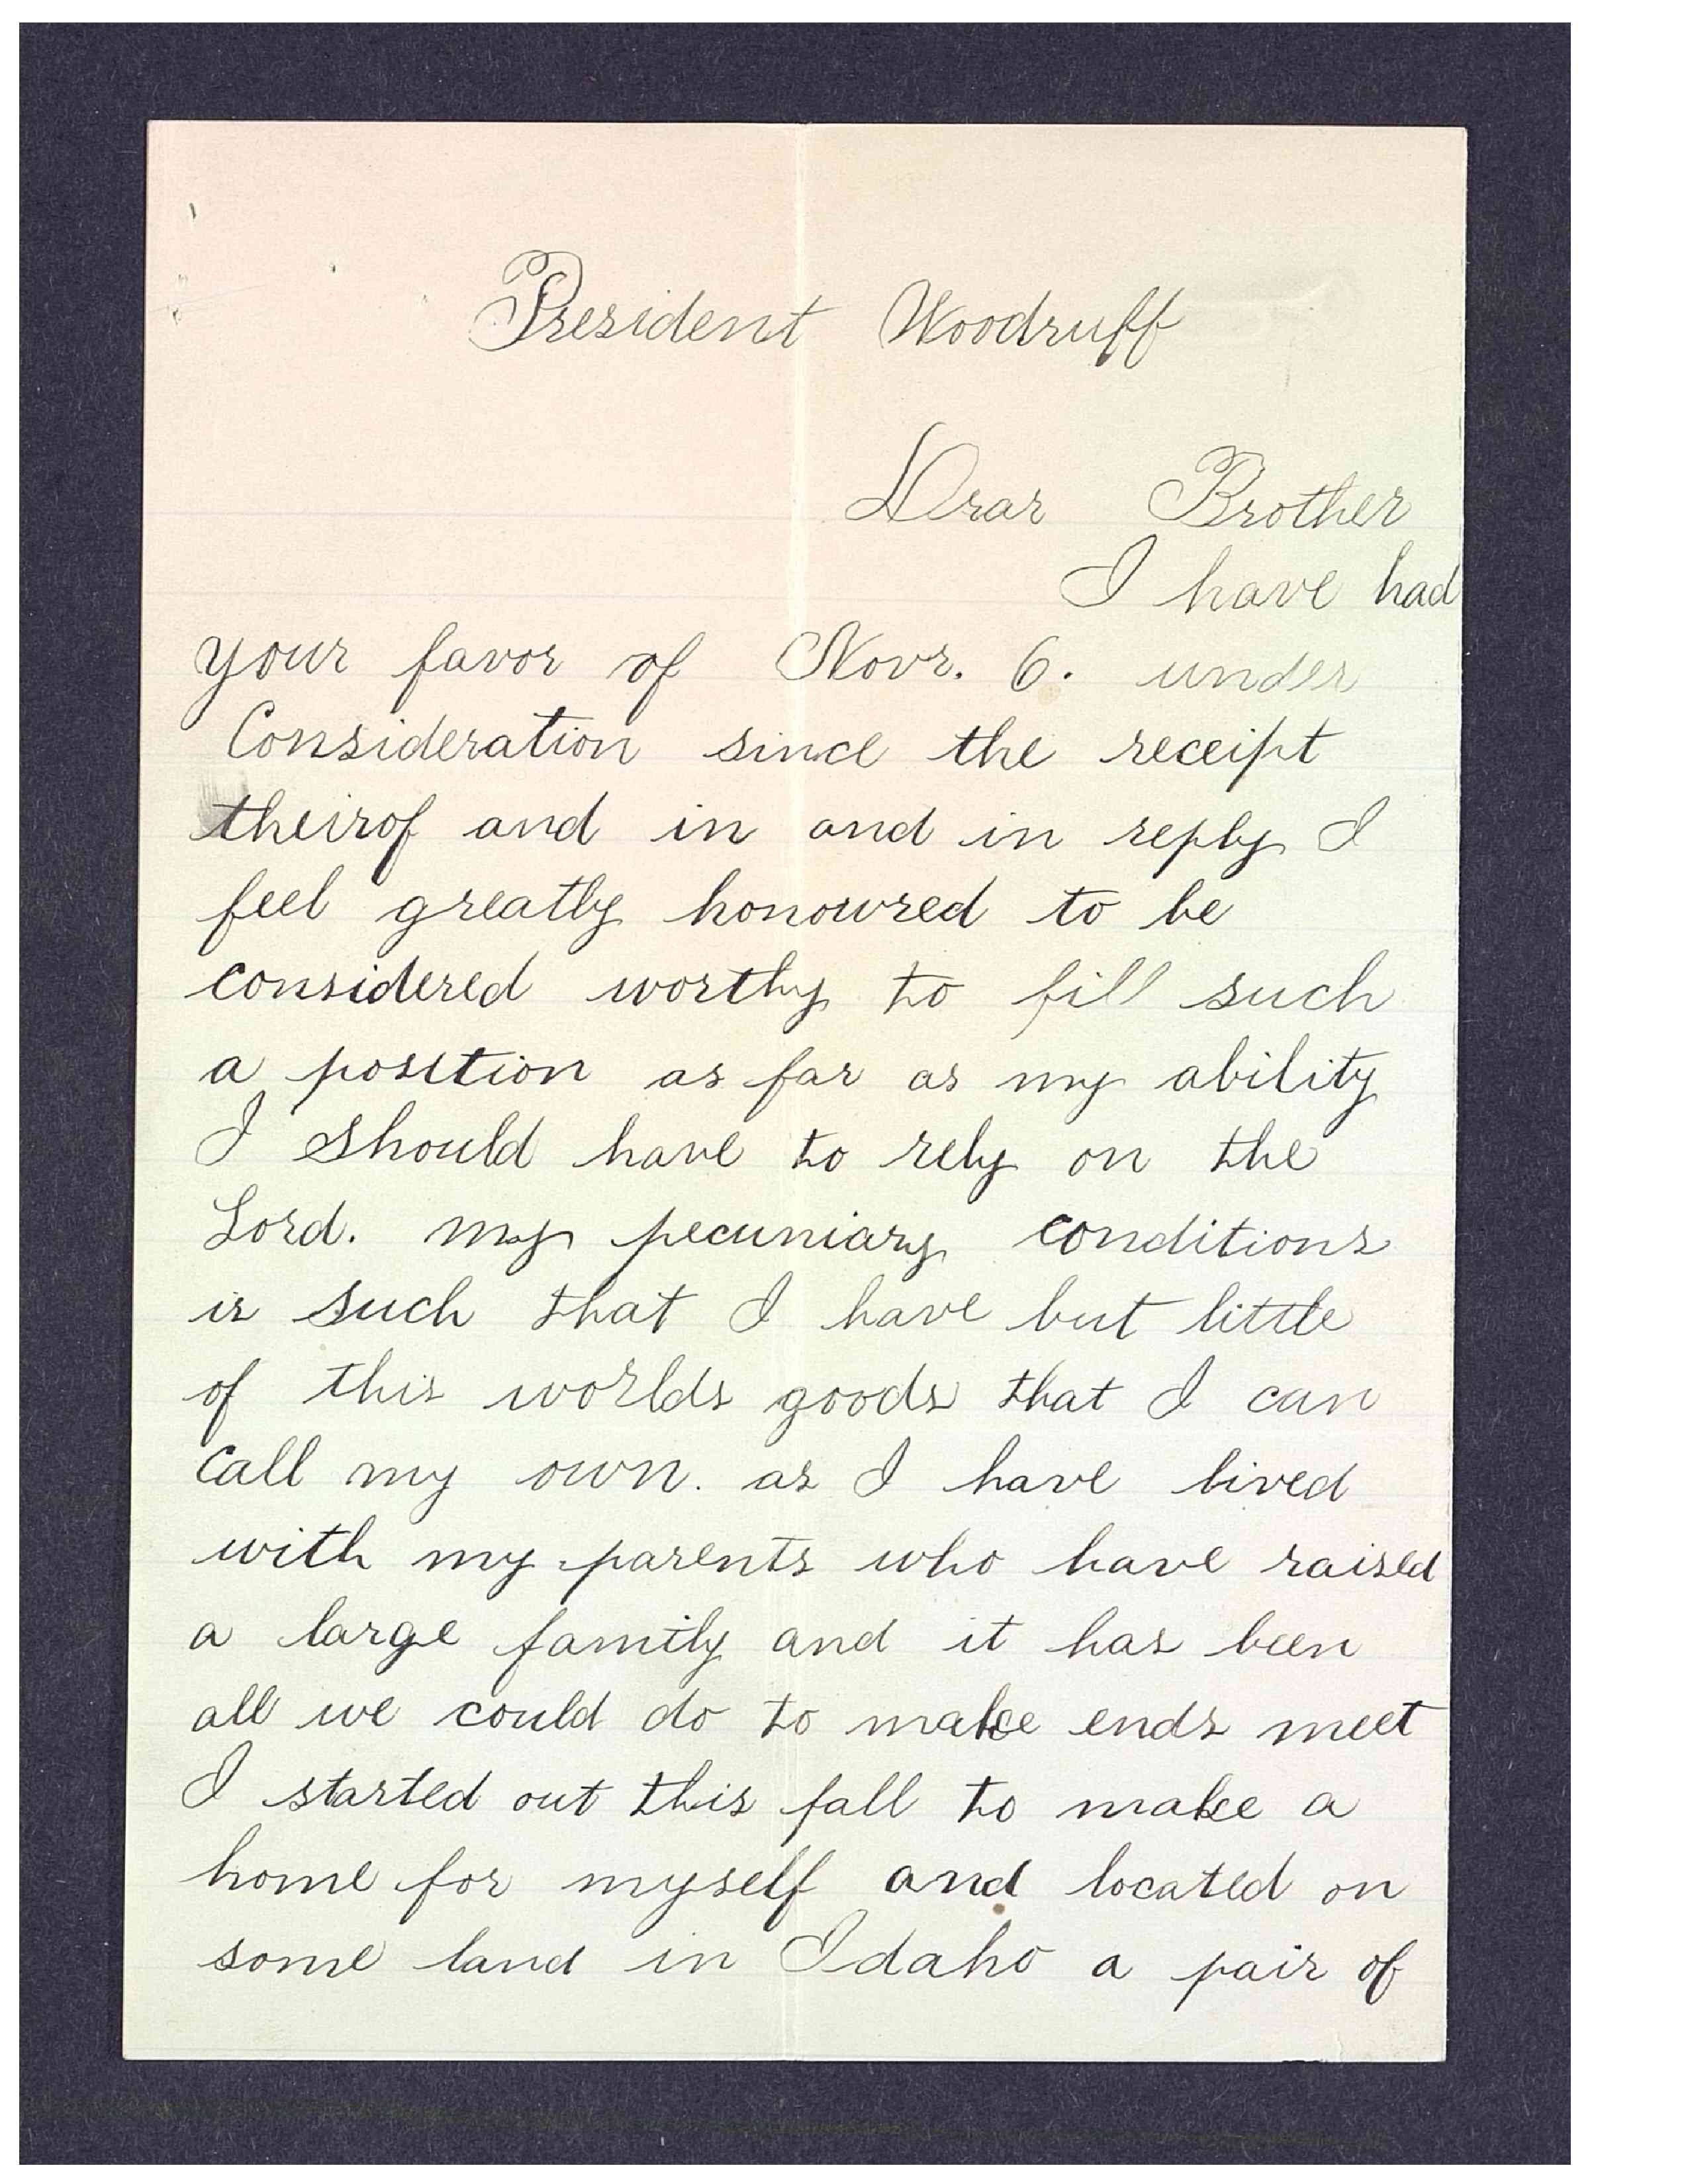 President Woodruff
Dear Brother
I have had
your favor of Novr. 6. under
Consideration since the receipt
theirof and in and in reply I
feel greatly honoured to be
considered worthy to fill such
a position as far as my ability
I should have to rely on the
Lord. my pecuniary conditions
is such that I have but little
of this worlds goods that I can
call my own. as I have lived
with my parents who have raised
a large family and it has been
all we could do to make ends meet
I started out this fall to make a
home for myself and located on
some land in Idaho a pair of